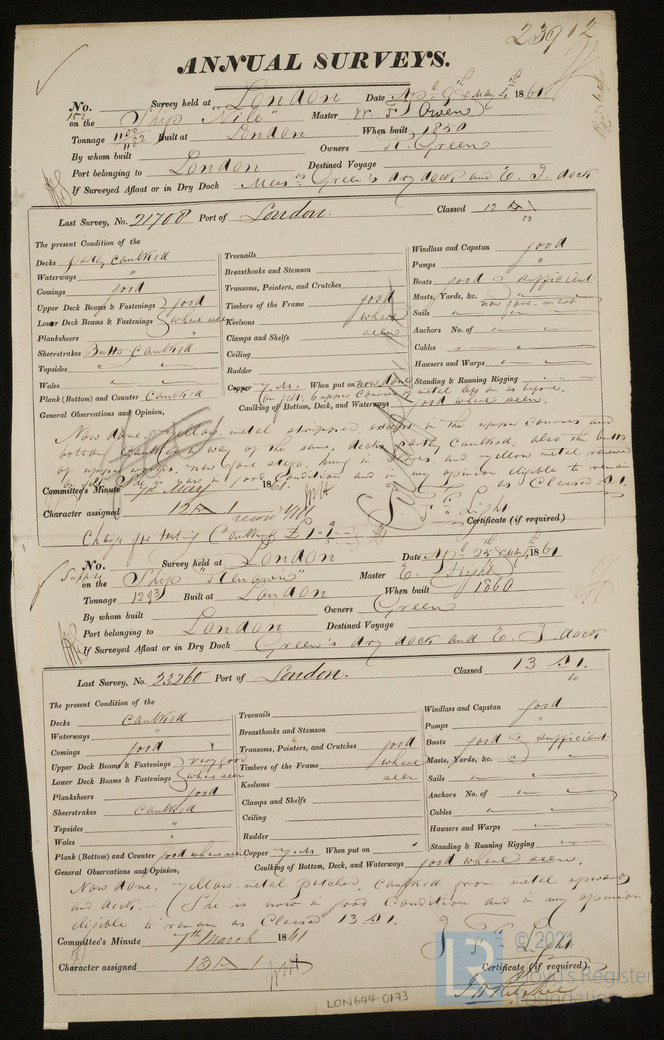 23912
ANNUAL SURVEYS.
No. Survey held at London Date Ap. 9 & May 4th 1861
on the Ship "Nile" Master W. F. Owen
Tonnage Built at London When built 1850
By whom built Owners R. Green
Port belonging to London Destined Voyage
If Surveyed Afloat or in Dry Dock Mess rs Green's dry dock and E. I. dock
Last Survey, No. 21708 Port of London. Classed 12 A 1
The present Condition of the
Decks partly Caulked
Waterways "
Comings good
Upper Deck Beams & Fastenings good
Lower Deck Beams & Fastenings where seen
Planksheers "
Sheerstrakes Butts Caulked
Topsides " "
Wales " "
Plank (Bottom) and Counter Caulked
Treenails
Breasthooks and Stemson
Transoms, Pointers, and Crutches
Timbers of the Frame good
Keelsons where
Clamps and Shelfs seen
Ceiling
Rudder
Copper Y. M. When put on now done
Caulking of Bottom, Deck, and Waterways good where seen.
Windlass and Capstan good
Pumps "
Boats good sufficient
Masts, Yards, &c. "
Sails " "
Anchors No. of " "
Cables " "
Hawsers and Warps
Standing & Running Rigging
General Observations and Opinion,
Now done, yellow metal stripped, except in the upper Courses and
bottom Caulked in way of the same, decks partly Caulked, also the butts
of upper works, new fore step, hung in shores and yellow metal renewed
She is now in good Condition and in my opinion eligible to remain
as Classed A 1.
Committee's Minute 7th May 1861.
Character assigned 12 A 1
F. Light
Certificate (if required)
Charge for testing Cables £1-1-
No. Survey held at London Date Ap. 25 & May 1861
on the Ship "Renown" Master E.
Tonnage 1293 Built at London When built 1860
By whom built Owners Green
Port belonging to London Destined Voyage
If Surveyed Afloat or in Dry Dock Green's dry dock and E. I. dock
Last Survey, No. 23260 Port of London. Classed 13 A 1.
60
The present Condition of the
Decks Caulked
Waterways "
Comings good
Upper Deck Beams & Fastenings very good
Lower Deck Beams & Fastenings where seen
Planksheers good
Sheerstrakes Caulked
Topsides "
Wales "
Plank (Bottom) and Counter good where seen
Treenails
Breasthooks and Stemson
Transoms, Pointers, and Crutches good
Timbers of the Frame where
Keelsons seen
Clamps and Shelfs
Ceiling
Rudder
Copper Y. M. When put on "
Caulking of Bottom, Deck, and Waterways good where seen.
Windlass and Capstan good
Pumps "
Boats good sufficient
Masts, Yards, &c. "
Sails " "
Anchors No. of " "
Cables " "
Hawsers and Warps " "
Standing & Running Rigging
General Observations and Opinion,
Now done, Yellow-metal patched, Caulked from metal upwards
and deck. — She is now in good Condition and in my opinion
eligible to remain as Classed 13 A 1.
Committee's Minute 7th March 1861
Character assigned 13 A 1
F. Light
Certificate (if required)
LON644-0173
© 2021
Lloyd's Register
Foundation